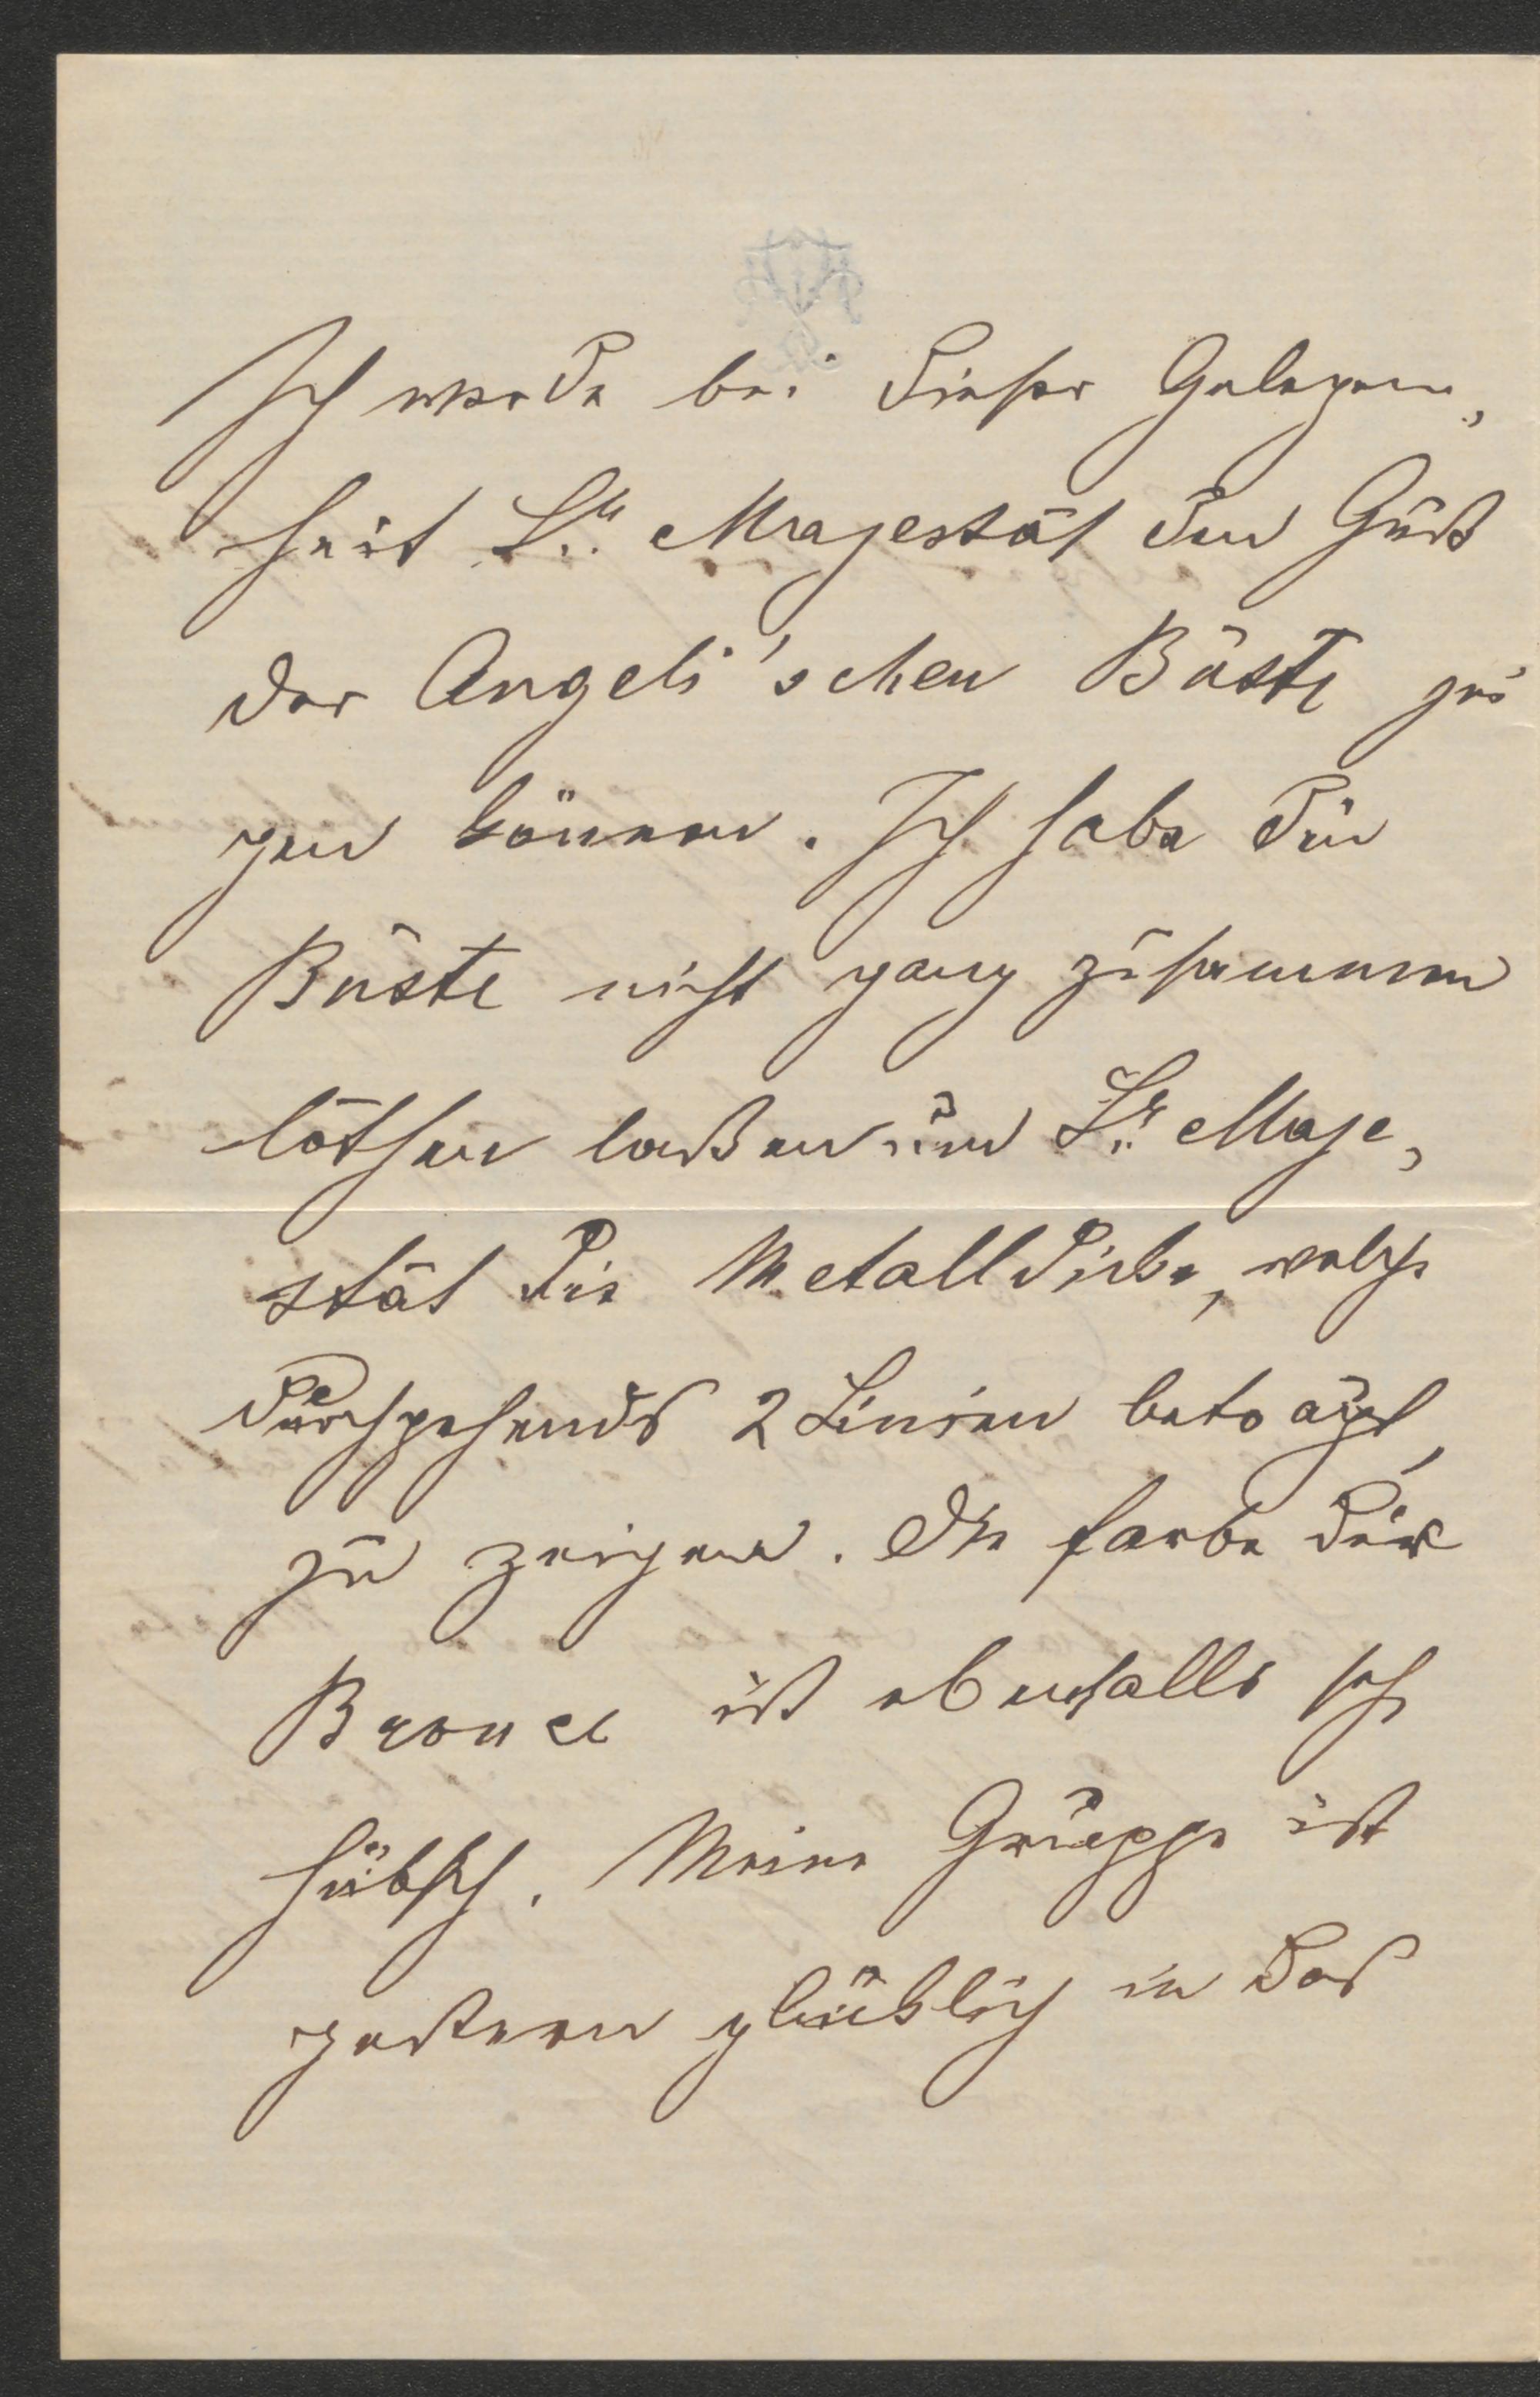 Ich werde bei dieser Gelegen„
heit Sr. Majestät den Guß
der Angeli'schen Büste zei
gen können. Ich habe die
Büste nicht ganz zusammen
löthen laßen um Sr. Maje„
stät die Metalldicke, welche
durchgehends 2 Linien beträgt,
zu zeigen. Die Farbe der
Bronce ist ebenfalls sehr
hübsch. Meine Gruppe ist
gestern glücklich in das